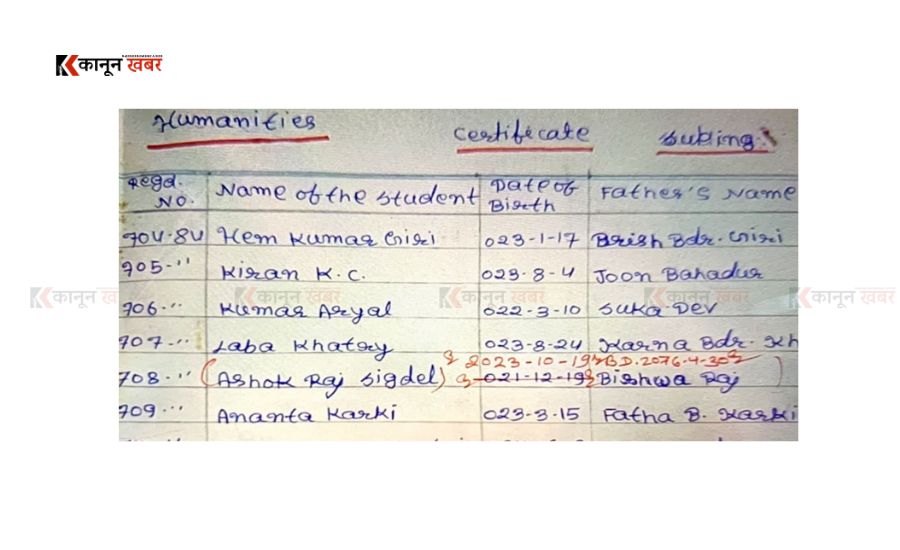 कानून खबर
Humanities Certificate
Regd. No. Name of the Student Date of Birth Father's Name
704-84 Hem Kumar Giri 023-1-17 Brish Bdr. Giri
705-" Kiran K.C. 023-8-4 Joon Bahadur
कानून ख कानून खबर कानून खबर कानून खबर
706-" Kumar Aryal 022-3-10 Suka Dev
707-" Laba Khatry 023-8-24 Karna Bdr. Kh
2023-10-19 B.D. 2076-4-30
708-" (Ashok Raj Sigdel) 021-12-19 Bishwa Raj
709-" Ananta Karki 023-3-15 Fatha B. Karki